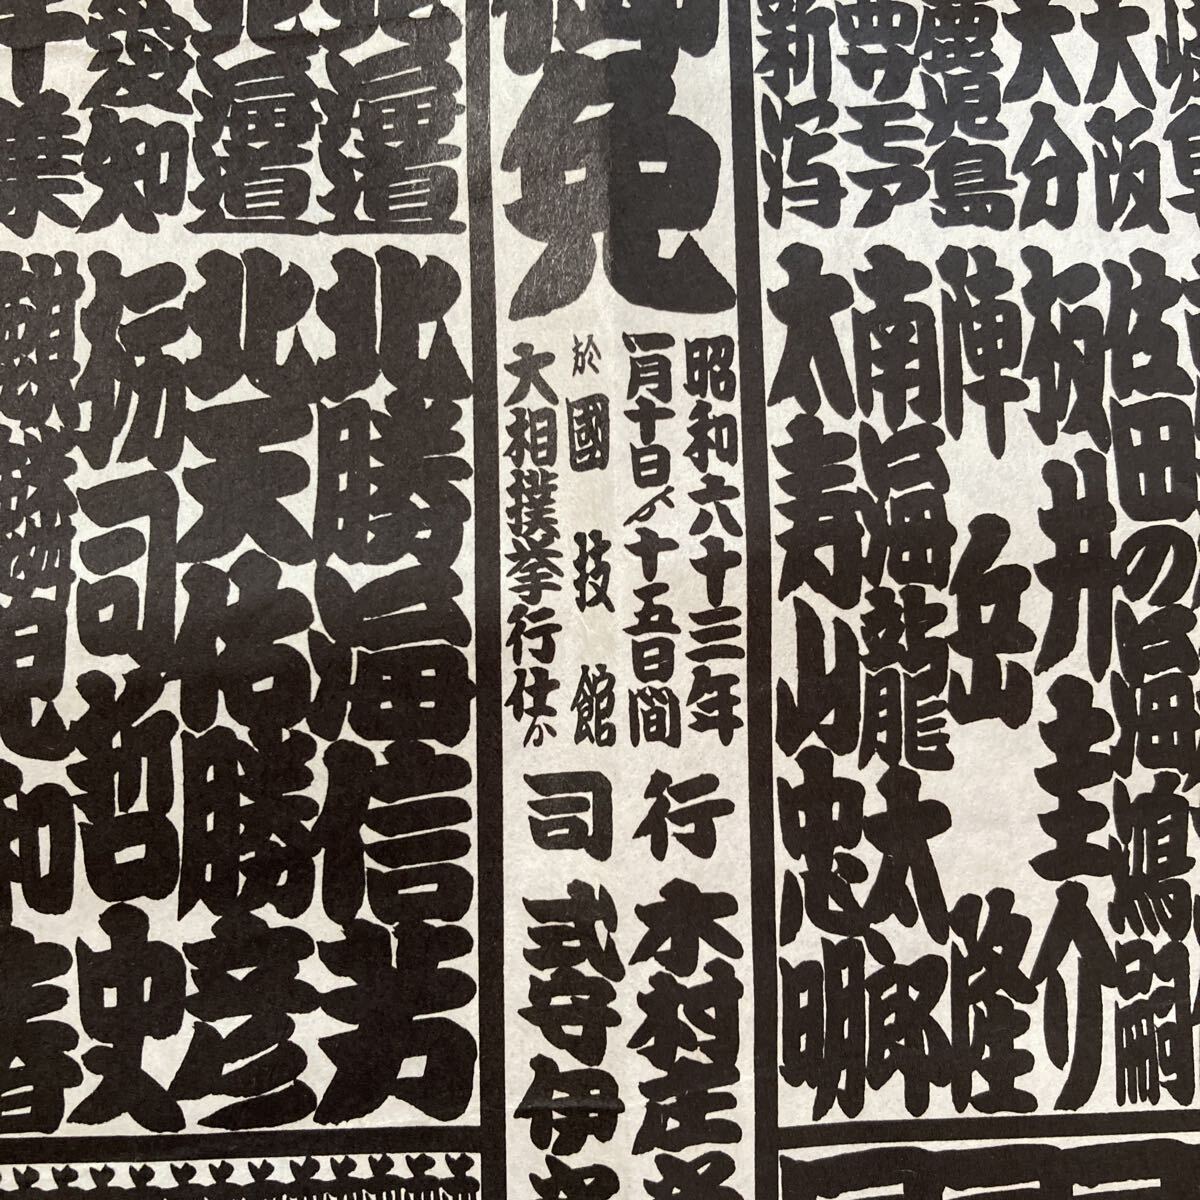 大阪 佐田の海鴻嗣
大分 板井圭介
鹿児島 陣岳隆
西サモア 南海龍太郎
新潟 太寿山忠明
御免
昭和六十三年
一月十日ゟ十五日間
於國技館
大相撲挙行仕
行司
木村庄
式守伊
北海道 北勝海信芳
北海道 北天佑勝彦
愛知 栃司哲史
千葉 麒麟児和春